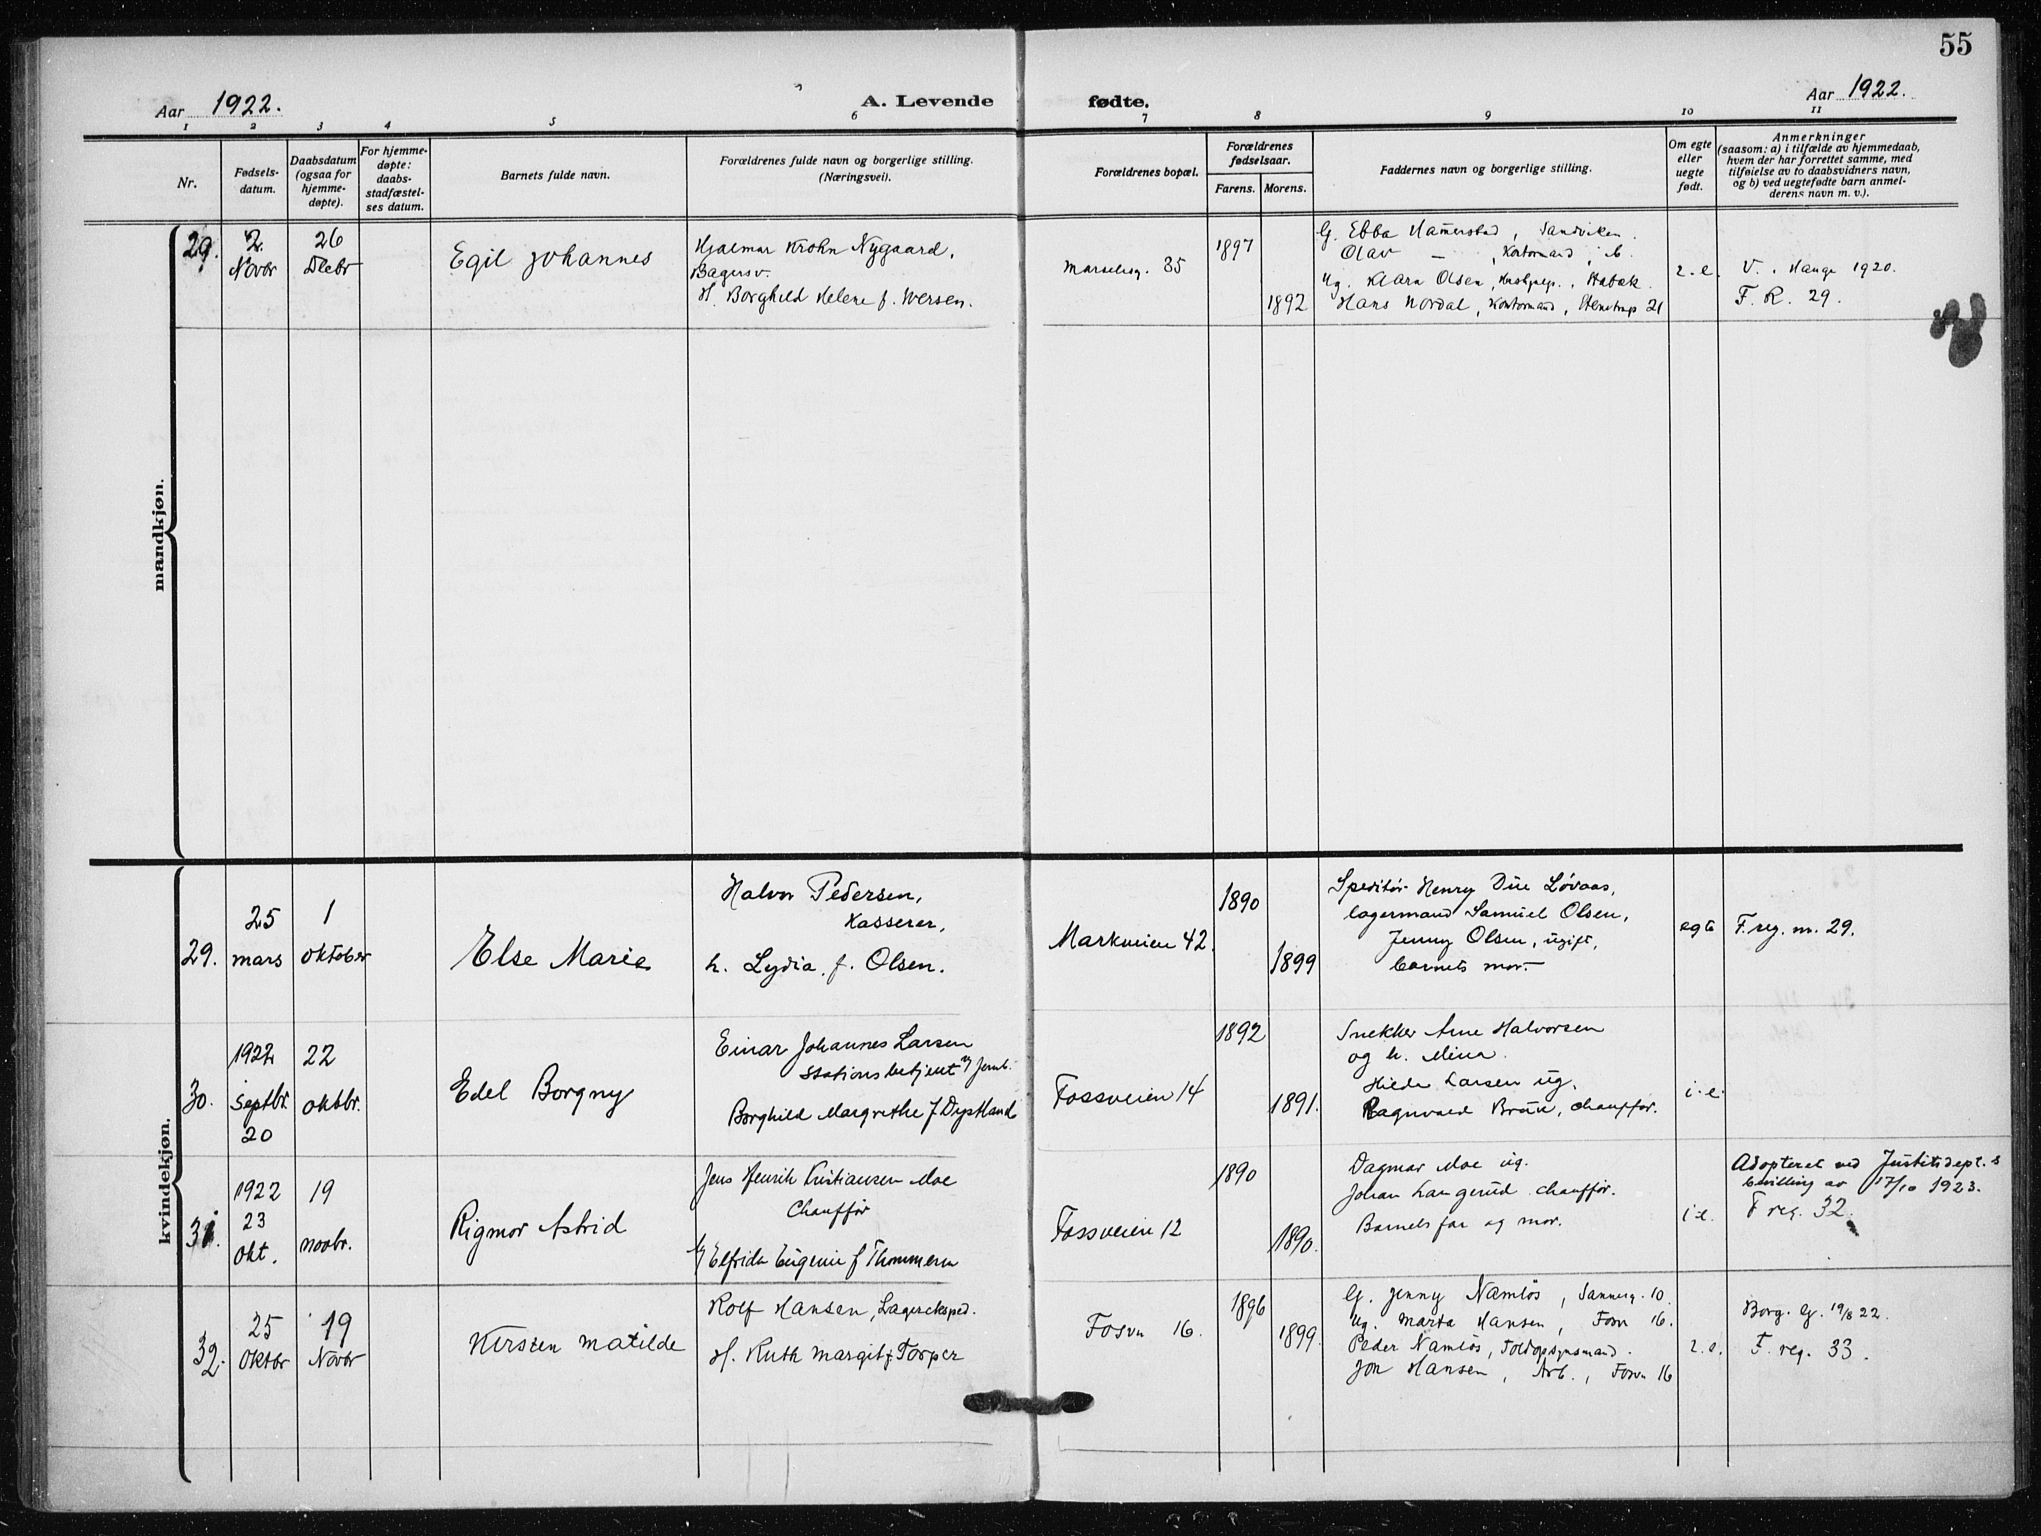 55
Aar 1922.
A. Levende
fødte.
Aar 1922.
1 2 3 4 5 6 7 8 9 10 11
Nr.
Fødsels-
datum.
Daabsdatum
(ogsaa for
hjemme-
døpte).
For hjemme-
døpte:
daabs-
stadfæstel-
ses datum.
Barnets fulde navn.
Forældrenes fulde navn og borgerlige stilling.
(Næringsvei).
Forældrenes bopæl.
Forældrenes
fødselsaar.
Farens. Morens.
Faddernes navn og borgerlige stilling.
Om egte
eller
uegte
født.
Anmerkninger
(saasom: a) i tilfælde av hjemmedaab,
hvem der har forrettet samme, med
tilføielse av to daabsvidners navn,
og b) ved uegtefødte barn anmel-
derens navn m. v.).
mandkjøn.
29.
2.
Novbr
26
Decbr
Egil Johannes
Hjalmar Krohn Nygaard,
Bagersv.
H. Borghild Helene f. Iversen.
Marselisg. 35
1897
1892
G. Ebba Hamerstad, Sandviken.
Olav — , Kontormand, ib.
Ug. Klara Olsen, , Stabæk.
Hans Nordal, Kontormand, 21
e.
V. . Hauge 1920.
F. R. 29.
kvindekjøn.
29.
25
mars
1
oktober
Else Marie
Halvor Pedersen,
Kasserer,
h. Lydia f. Olsen.
Markveien 42.
1890
1899
Speditør Henry Due Løvaas,
lagermand Samuel Olsen,
Jenny Olsen, ugift,
barnets mor.
egte
F. reg. nr. 29.
30.
1922
Septbr.
20
22
oktbr.
Edel Borgny
Einar Johannes Larsen
Stationsbetjent v/ Jernb.
Borghild Margrethe f Dystland
Fossveien 14
1892
1891.
Snekker Arne Halvorsen
og h. Mina.
Hilda Larsen ug.
Ragnvald Bruu, chauffør.
i. e.
31.
1922
23
Okt.
19
novbr.
Rigmor Astrid
Jens Henrik Kristiansen Moe
Chauffør
Elfrida Eugenie f Thommesen
Fossveien 12
1890
1890.
Dagmar Moe ug.
Johan Langerud chauffør.
Barnets far og mor.
i e.
Adopteret ved Justitsdept.s
bevilling av 17/10 1923.
F reg. 32.
32.
25
Oktbr
19
Novbr
Kirsten Matilde
Rolf Hansen, Lagereksped.
H. Ruth Margit f Torper
Fosvn 16.
1896
1899.
G. Jenny Namløs, Sannerg. 10.
Ug. Marta Hansen, Fosvn 16.
Peder Namløs, Toldopsynsmand.
Jon Hansen, Arb., Fosvn 16
e.
Borg. G. 19/8 22.
F. reg. 33.